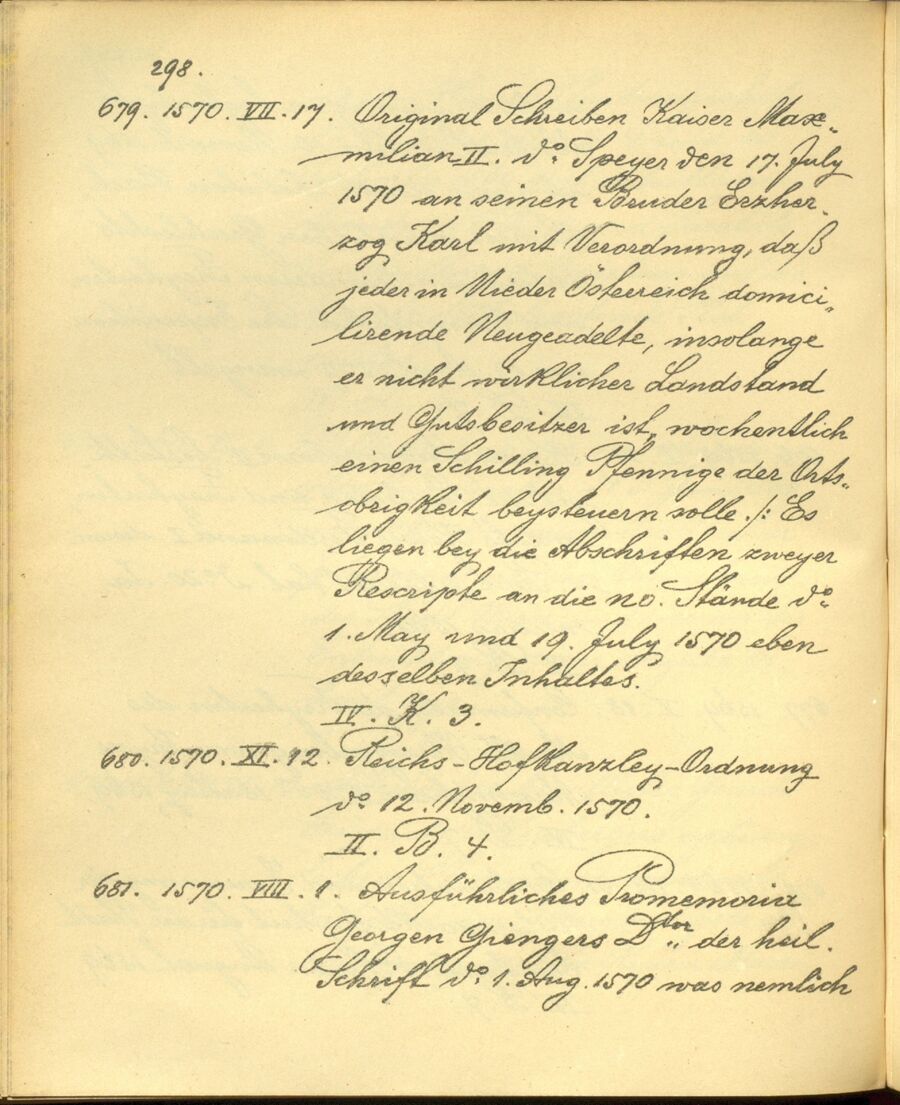 298.
679. 1570. VII. 17. Original Schreiben Kaiser Max„
milian II. do: Speyer den 17. July
1570 an seinen Bruder Erzher„
zog Karl mit Verordnung, daß
jeder in Nieder Österreich domici„
lirende Neugeadelte, insolange
er nicht wirklicher Landstand
und Gutsbesitzer ist, wochentlich
einen Schilling Pfennige der Orts„
obrigkeit beysteuern solle. /: Es
liegen bey die Abschriften zweyer
Rescripte an die no. Stände do:
1. May und 19. July 1570 eben
desselben Inhaltes.
IV. K. 3.
680. 1570. XI. 12. Reichs-Hofkanzley-Ordnung
do: 12. Novemb. 1570.
II. B. 4.
681. 1570. VIII. 1. Ausführliches Promemoria
Georgen Giengers Dtor„ der heil.
Schrift do: 1. Aug. 1570 was nemlich